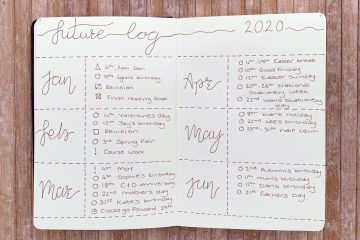 future log
2020
Jan
4th, 2pm Dan
9th Lynn's birthday
Revision
Finish reading book
Feb
14th Valentines day
15th Jay's birthday
Revision
3rd Spring Fair
Course work
Mar
6th MOT
6th Sophie's birthday
18th C+D anniversary
22nd mothers day
31st Katie's birthday
Clocks go forward 29th
Apr
6th-19th Easter break
10th Good Friday
12th Easter Sunday
20th-26th National
Stationery week
22nd World stationery
day
May
8th Bank Holiday
22nd Lee's birthday
25th-31st half term
Jun
2nd Autumn's birthday
11th mum's birthday
12th Dan's birthday
21st Fathers Day